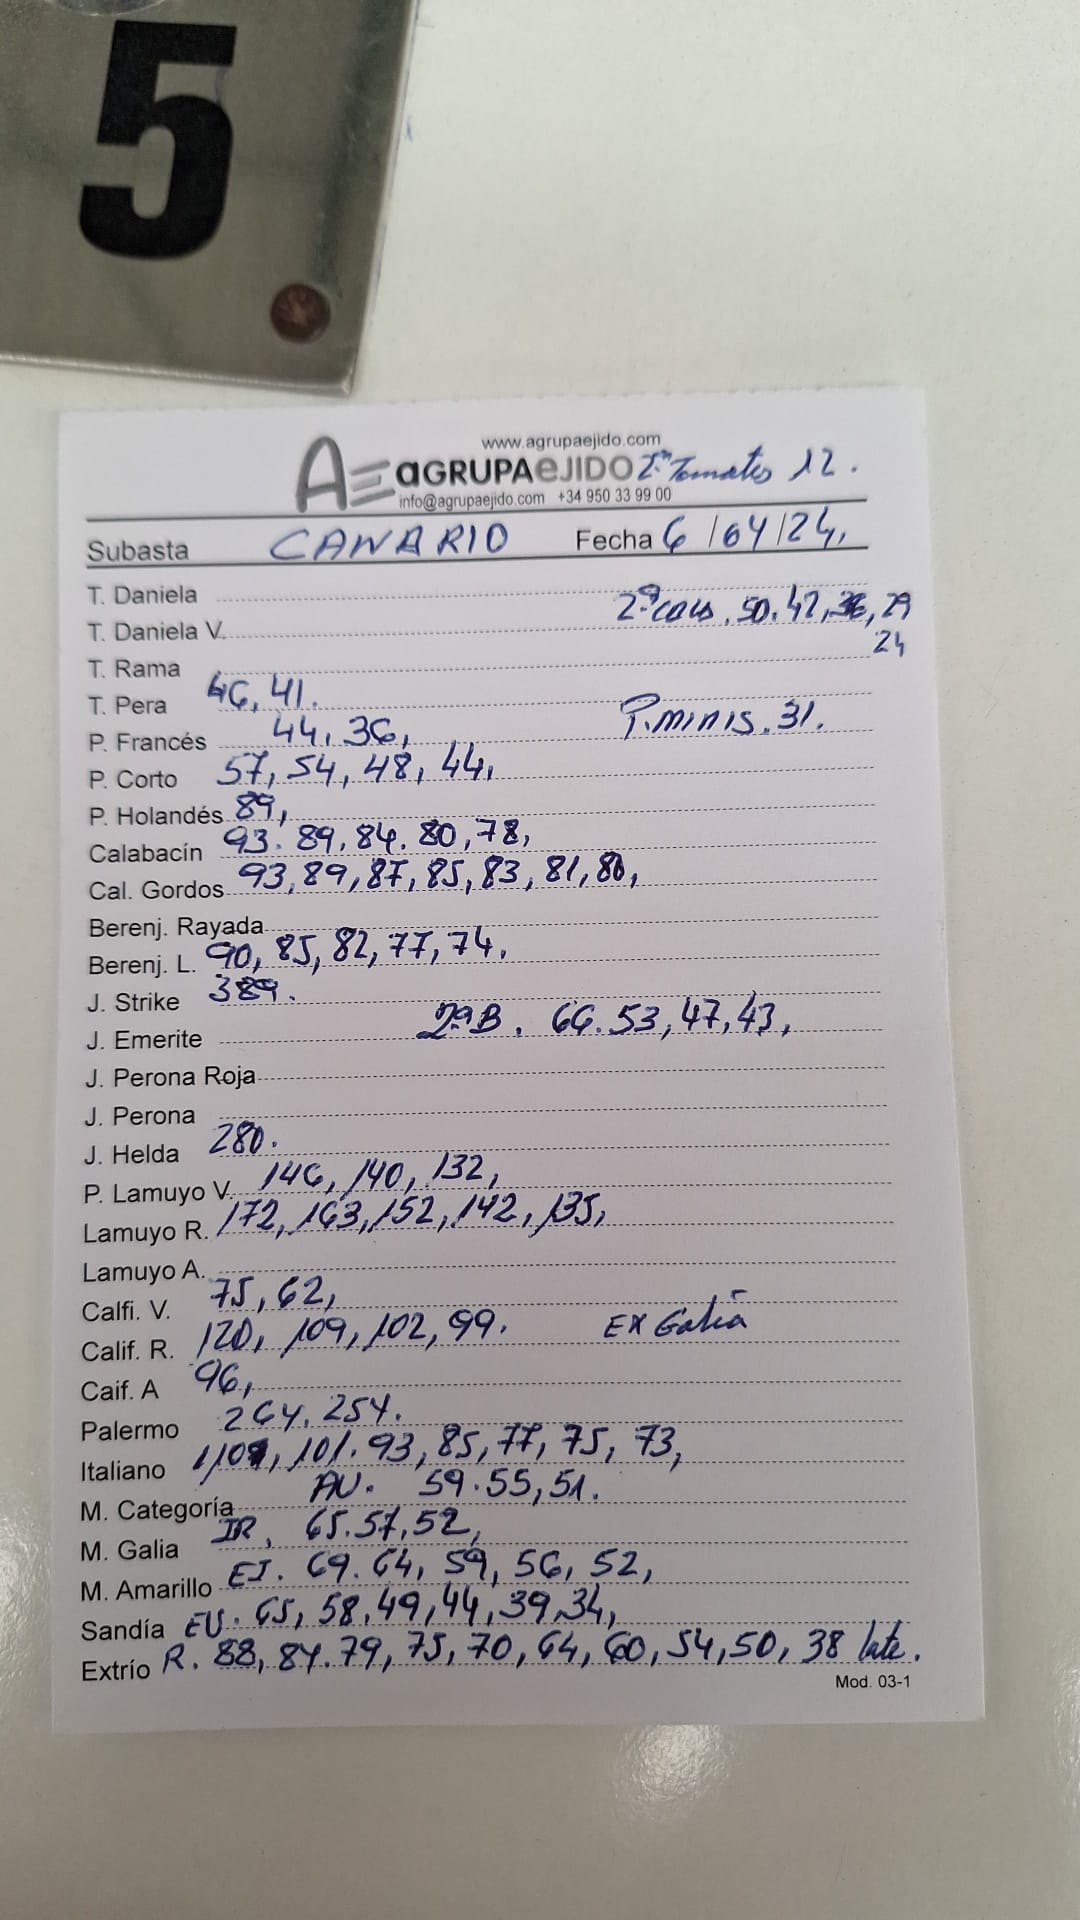 5
www.agrupaejido.com
AE aGRUPAeJIDO 2ª Tomates 12.
info@agrupaejido.com +34 950 33 99 00
Subasta CANARIO Fecha 6/04/24,
T. Daniela
2ª cals. 50. 42, 36, 29
T. Daniela V.
24
T. Rama
T. Pera 46, 41.
P. Francés 44, 36, P. minis. 31.
P. Corto 57, 54, 48, 44,
P. Holandés 89,
Calabacín 93. 89, 84. 80, 78,
Cal. Gordos 93, 89, 87, 85, 83, 81, 80,
Berenj. Rayada
Berenj. L. 90, 85, 82, 77, 74.
J. Strike 389.
J. Emerite 2ª B. 66. 53, 47, 43,
J. Perona Roja
J. Perona
J. Helda 280.
P. Lamuyo V. 146, 140, 132,
Lamuyo R. 172, 163, 152, 142, 135,
Lamuyo A.
Calfi. V. 75, 62,
Calif. R. 120, 109, 102, 99. EX Galia
Caif. A 96,
Palermo 264. 254.
Italiano 101. 93, 85, 77, 75, 73,
M. Categoría AU. 59. 55, 51.
M. Galia IR, 65. 57, 52,
M. Amarillo EJ. 69. 64, 59, 56, 52,
Sandía EU. 65, 58, 49, 44, 39, 34,
Extrío R. 88, 84. 79, 75, 70, 64, 60, 54, 50, 38 late.
Mod. 03-1